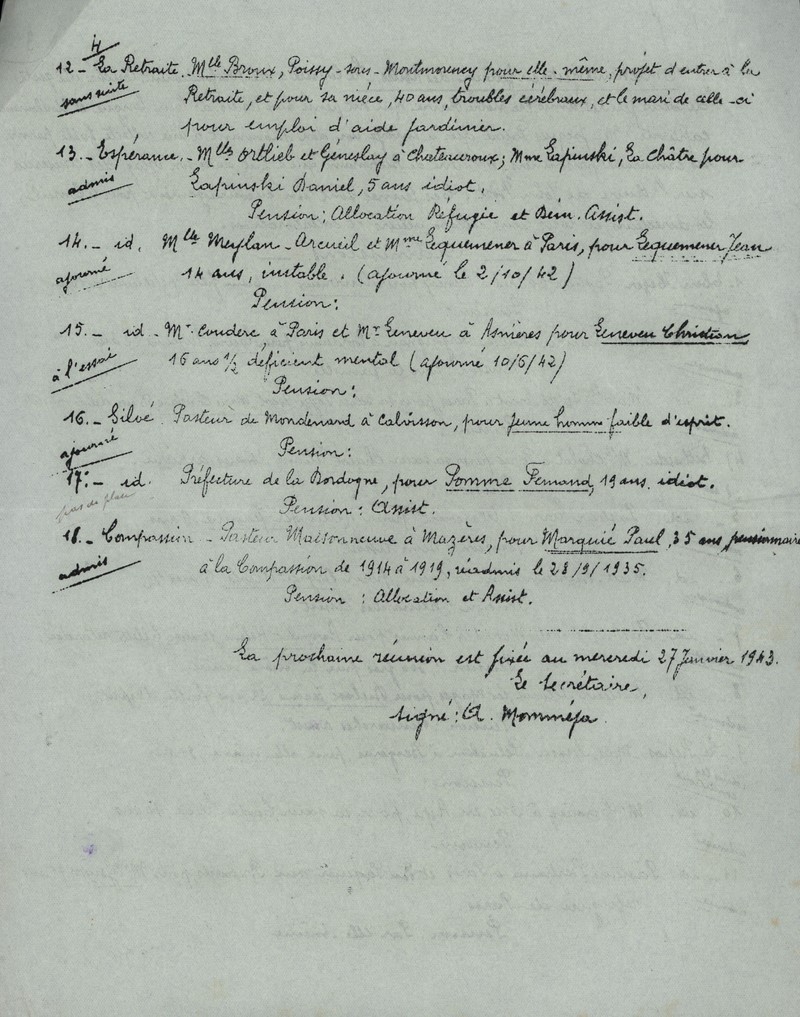 4
12 - La Retraite. Mlle Broux, Poissy-sous-Montmorency pour elle-même, projet d'entrer à la
sans suite
Retraite, et pour sa nièce, 40 ans, troubles cérébraux, et le mari de celle-ci
pour emploi d'aide jardinier.
13. - Espérance. - Mlls Ortlieb et Géneslay à Chateauroux; Mme Lapinski, La Châtre pour
admis
Lapinski Daniel, 5 ans idiot.
Pension: Allocation Réfugié et Bén. Assist.
14. - id. Mlle Meylan - Arcueil et Mme Lequemener à Paris, pour Lequemener Jean
ajourné
14 ans, instable. (ajourné le 2/10/42)
Pension:
15. - id - Mr. Couderc à Paris et Mr Geneveu à Asnières pour Geneveu Christian,
à l'essai
16 ans 1/2 déficient mental (ajourné 10/6/42)
Pension:
16. - Siloé. Pasteur de Mondenard à Calvisson, pour jeune homme faible d'esprit.
ajourné
Pension:
17. - id. Préfecture de la Dordogne, pour Pomme Fernand, 19 ans. idiot.
pas de place
Pension: Assist.
18. - Compassion - Pasteur Maisonneuve à Mazères, pour Marquié Paul, 35 ans, pensionnaire
admis
à la Compassion de 1914 à 1919, réadmis le 28/9/1935.
Pension : Allocation et Assist.
La prochaine réunion est fixée au mercredi 27 Janvier 1943.
Le Secrétaire,
Signé: A. Momméja.